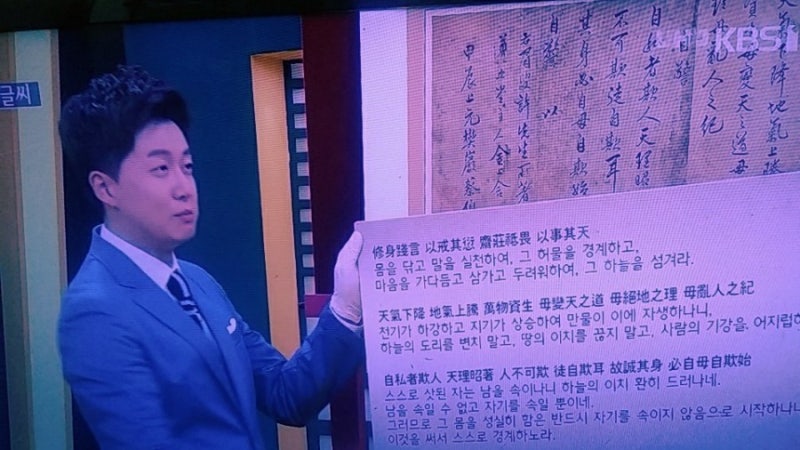 글씨
KBS1
降地氣上騰
變天之道毋
亂人之紀
自警
自私者欺人天理昭
不可欺徒自欺耳
其身必自毋自欺始
自警 以
甲辰上元樊巖蔡
修身踐言 以戒其愆 齋莊祗畏 以事其天
몸을 닦고 말을 실천하여, 그 허물을 경계하고,
마음을 가다듬고 삼가고 두려워하여, 그 하늘을 섬겨라.
天氣下降 地氣上騰 萬物資生 毋變天之道 毋絕地之理 毋亂人之紀
천기가 하강하고 지기가 상승하여 만물이 이에 자생하나니,
하늘의 도리를 변치 말고, 땅의 이치를 끊지 말고, 사람의 기강을 어지럽히
自私者欺人 天理昭著 人不可欺 徒自欺耳 故誠其身 必自毋自欺始
스스로 삿된 자는 남을 속이나니 하늘의 이치 환히 드러나네.
남을 속일 수 없고 자기를 속일 뿐이네.
그러므로 그 몸을 성실히 함은 반드시 자기를 속이지 않음으로 시작하나니
이것을 써서 스스로 경계하노라.